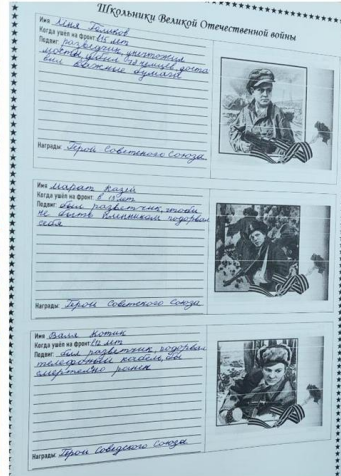 Школьники Великой Отечественной войны
Имя Лёня Голиков
Когда ушёл на фронт: 15 лет
Подвиг: разведчик, уничтожил
мосты, убил 78 немцев, доста
вил важные бумаги
Награды: Герой Советского Союза
Имя Марат Казей
Когда ушёл на фронт: в 13 лет
Подвиг: был разветчик, чтобы
не быть пленником подорвал
себя
Награды: Герой Советского Союза
Имя Валя Котик
Когда ушёл на фронт: 12 лет
Подвиг: был разветчик, подорвал
телефонный кабель, был
смертельно ранен
Награды: Герой Советского Союза